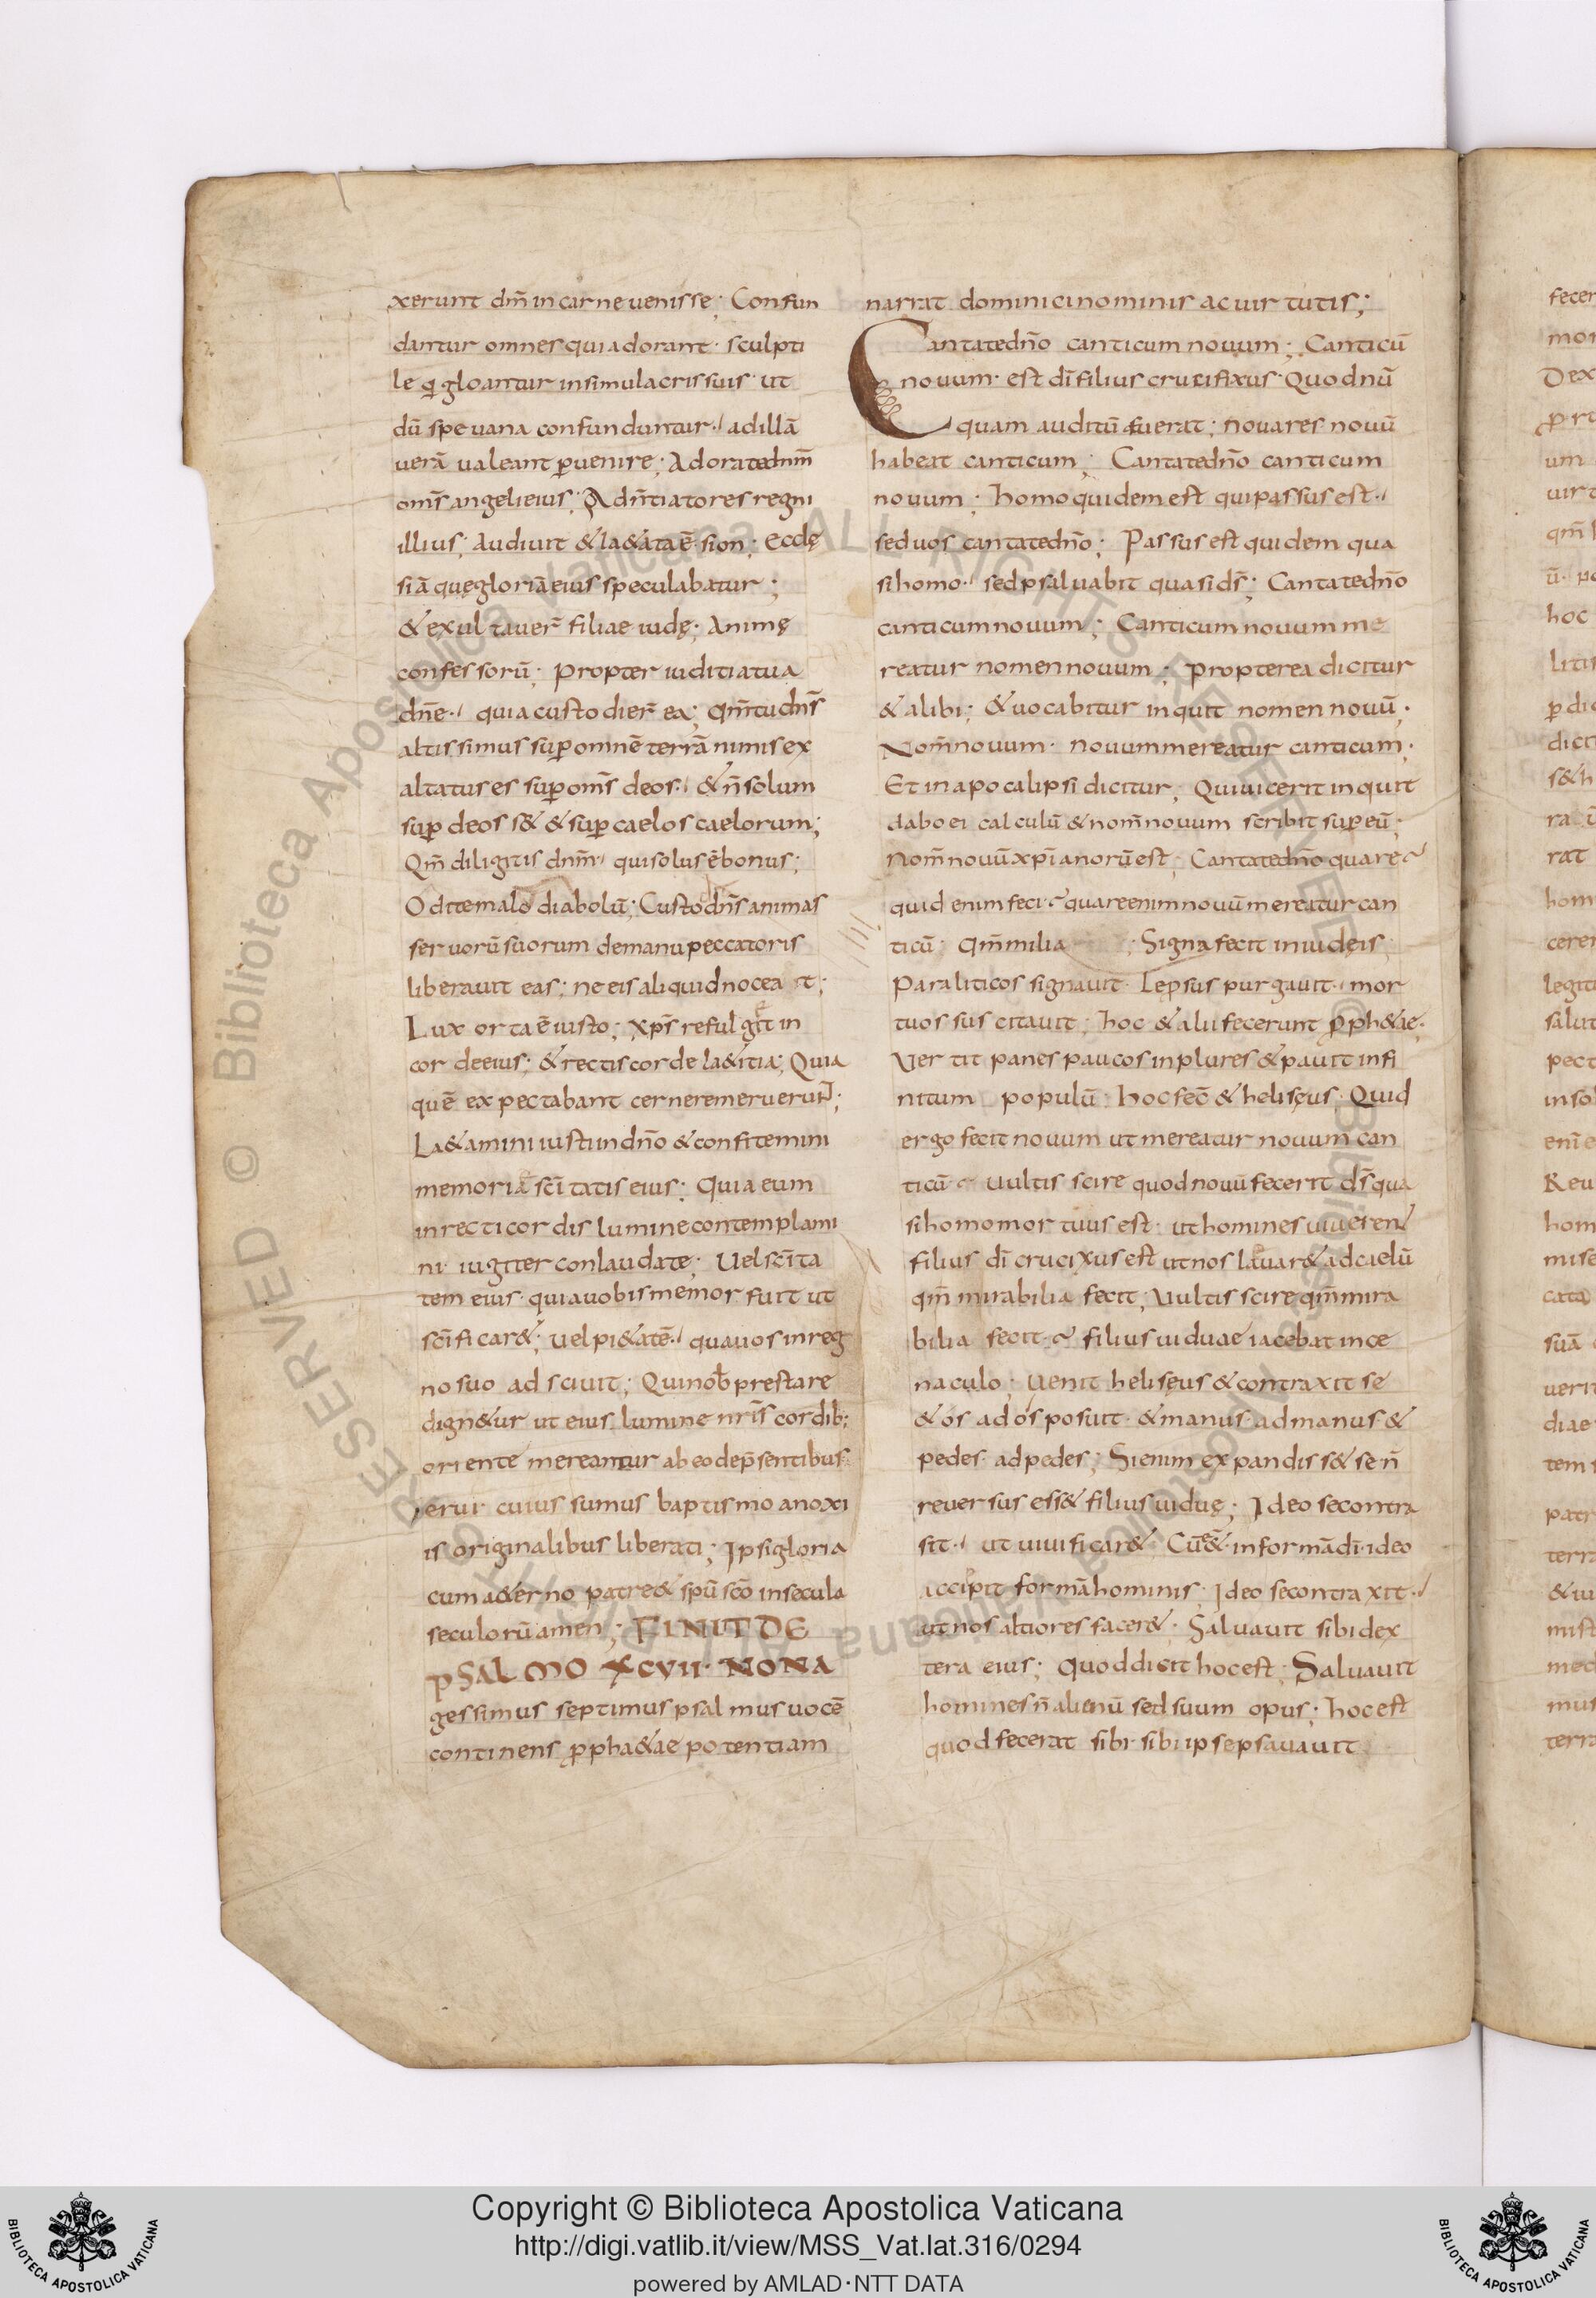 xerunt dm̄ in carne uenisse; Confun
dantur omnes qui adorant· sculpti
le q gloantur in simulacris suis· ut
dū spe uana confunduntur·/ ad illā
uerā ualeant ꝑuenire; Adorate dnm̄
om̄s angeli eius; Adn̄tiatores regni
illius; Audiuit & la&ata ē· sion; Eccłę
siā quę gloriā eius speculabatur;
& exultauer̄ filiae iudę; Animę
confessorū; Propter iuditia tua
dn̄e·/ quia custodier̄ ea; Qm̄ tu dn̄s
altissimus suꝑ omnē terrā nimis ex
altatus es suꝑ om̄s deos·/ & n̄ solum
suꝑ deos s& & suꝑ caelos caelorum;
Qm̄ diligitis dnm̄·/ qui solus ē bonus;
Odite malo diabolū; Custod dn̄s animas
seruorū suorum de manu peccatoris
liberauit eas; ne eis aliquid nocea t;
Lux orta ē iusto; xp̄s refulgit in
corde eius; & rectis corde la&itia; Quia
quē expectabant cernere meruerunt;
La&amini iusti in dn̄o & confitemini
memoriā sc̄itatis eius; Quia eum
in recti cordis lumine contemplami
ni iugiter conlaudate; Uel sc̄ita
tem eius· quia uobis memor fuit ut
sc̄ificar&; uel pi&atē·/ qua uos in reg
no suo adsciuit; Qui nob̄ prestare
dign&ur ut eius lumine nr̄is cordib;
oriente mereantur ab eo de p̄sentibus
erui· cuius sumus baptismo a noxi
is originalibus liberati; Ipsi gloria
cum a&erno patre & spū sc̄o in secula
seculorū amen; FINIT DE
PSALMO XCVII· NONA
gessimus septimus psalmus uocē
continens ꝓpha&ae potentiam
narrat dominici nominis ac uirtutis;
Cantate dn̄o canticum nouum; Canticū
nouum· est dī filius crucifixus· Quod nū
quam auditū fuerat; noua res nouū
habeat canticum; Cantate dn̄o canticum
nouum; homo quidem est qui passus est·/
sed uos cantate dn̄o; Passus est quidem qua
si homo·/ sed psaluabit quasi ds̄; Cantate dn̄o
canticum nouum; Canticum nouum me
reatur nomen nouum; Propterea dicitur
& alibi; & uocabitur inquit nomen nouū·
Nom̄ nouum· nouum mereatur canticum·
Et in apocalipsi dicitur; Qui uicerit inquit
dabo ei calculū & nom̄ nouum scribit suꝑ eū;
Nom̄ nouū xp̄ianorū est; Cantate dn̄o quare
quid enim feci· quare enim nouū mereatur can
ticū; Qm̄ milia ; Signa fecit in iudęis
Paraliticos signauit· Lepsus purgauit· mor
tuos suscitauit; hoc & alii fecerunt ꝓph&ae·
Uertit panes paucos in plures & pauit infi
nitum populū; hoc fec̄ & helisęus· Quid
ergo fecit nouum ut mereatur nouum can
ticū· uultis scire quod nouū fecerit ds̄ qua
si homo mortuus est· ut homines uiueren
filius dī crucixus est ut nos lauar& ad caelū
qm̄ mirabilia fecit; Uultis scire qm̄ mira
bilia fecit· filius uiduae iacebat in ce
naculo; Uenit helisęus & contraxit se
& os ad os posuit· & manus· ad manus &
pedes· ad pedes; Si enim expandiss& se n̄
reuersus ess& filius uiduę; Ideo se contra
sit·/ ut uiuificar&· Cū ēē& in formā dī· ideo
accipit formā hominis; Ideo se contraxit·/
ut nos altiores facer&· Saluauit sibi dex
tera eius; Quod dicit hoc est; Saluauit
homines n̄ alienū sed suum opus; hoc est
quod fecerat sibi· sibi ipse psauauit
fecer
mor
Dex
um
uirt
qm̄
ū· po
hoc
litis
ꝑdic
dict
s&h
ra
rat
hom
cerer
legiti
salut
pect
in so
enī e
Reu
hom
mise
cata
suā
uerit
diae
tem
patr
terra
& iu
mist
med
mus
terra
© Biblioteca Apostolica Vaticana ALL RIGHTS RESERVED
Copyright © Biblioteca Apostolica Vaticana
http://digi.vatlib.it/view/MSS_Vat.lat.316/0294
powered by AMLAD·NTT DATA
BIBLIOTECA APOSTOLICA VATICANA
BIBLIOTECA APOSTOLICA VATICANA